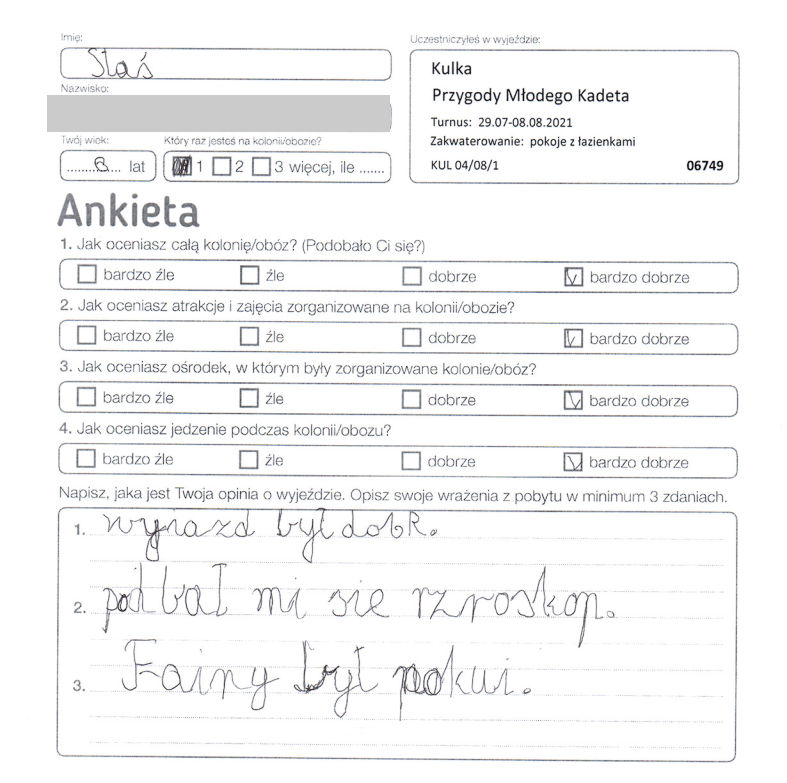 Imię:
Staś
Uczestniczyłeś w wyjeździe:
Kulka
Przygody Młodego Kadeta
Turnus: 29.07-08.08.2021
Zakwaterowanie: pokoje z łazienkami
KUL 04/08/1 06749
Nazwisko:
Twój wiek: Który raz jesteś na kolonii/obozie?
........8.... lat 1 2 3 więcej, ile .......
Ankieta
1. Jak oceniasz całą kolonię/obóz? (Podobało Ci się?)
bardzo źle źle dobrze bardzo dobrze
2. Jak oceniasz atrakcje i zajęcia zorganizowane na kolonii/obozie?
bardzo źle źle dobrze bardzo dobrze
3. Jak oceniasz ośrodek, w którym były zorganizowane kolonie/obóz?
bardzo źle źle dobrze bardzo dobrze
4. Jak oceniasz jedzenie podczas kolonii/obozu?
bardzo źle źle dobrze bardzo dobrze
Napisz, jaka jest Twoja opinia o wyjeździe. Opisz swoje wrażenia z pobytu w minimum 3 zdaniach.
1. wyiazd był dobR.
2. podbał mi sie rzroskop.
3. Fainy był pokui.